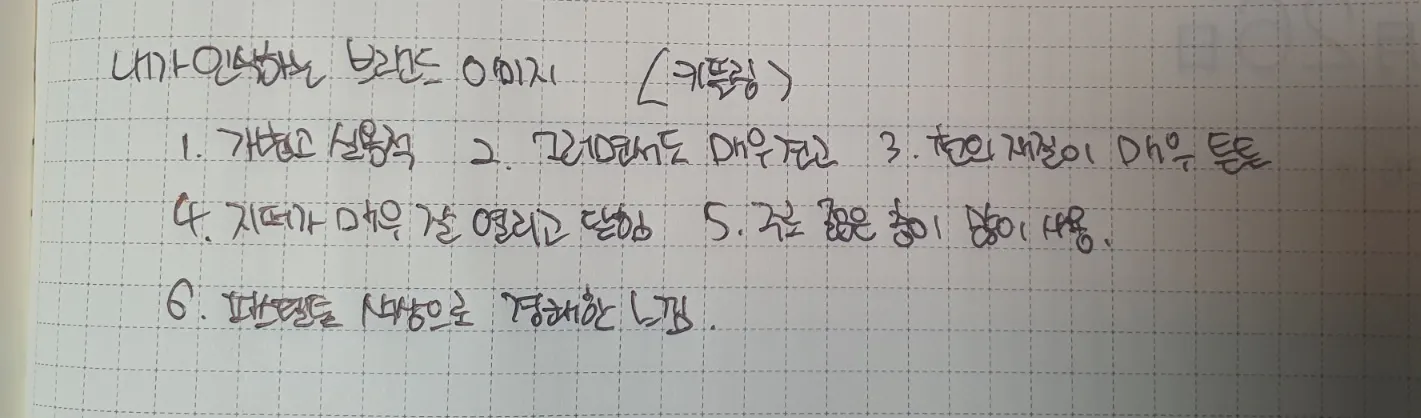 내가 인식하는 브랜드 이미지 (키뜰링)
1. 가볍고 실용적 2. 그러면서도 매우 견고 3. 천의 재질이 매우 튼튼
4. 지퍼가 매우 잘 열리고 닫힘 5. 주로 젊은 층이 많이 사용.
6. 파스텔톤 색상으로 경쾌한 느낌.